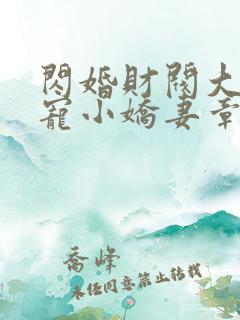 閃婚財閥大
寵小嬌妻章
喬峰
未经同意禁止转载